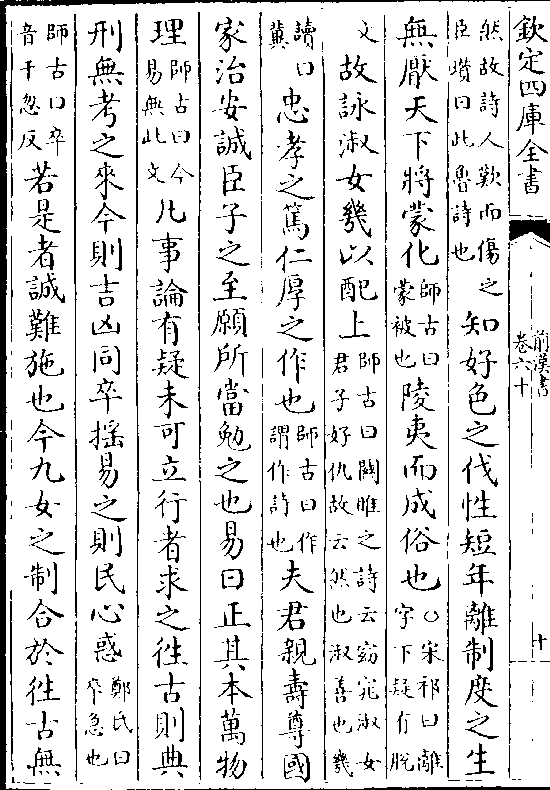 欽定四庫全書
前漢書
卷六十
十
然故詩人歎而傷之
臣瓚曰此魯詩也
知好色之伐性短年離制度之生
無厭天下將蒙化
師古曰
蒙被也
陵夷而成俗也
○宋祁曰離
字下疑有脫
文
故詠淑女幾以配上
師古曰關雎之詩云窈窕淑女
君子好仇故云然也淑善也幾
讀曰
冀
忠孝之篤仁厚之作也
師古曰作
謂作詩也
夫君親壽尊國
家治安誠臣子之至願所當勉之也易曰正其本萬物
理
師古曰今
易無此文
凡事論有疑未可立行者求之往古則典
刑無考之來今則吉凶同卒揺易之則民心惑
鄭氏曰
卒急也
師古曰卒
音千忽反
若是者誠難施也今九女之制合於往古無